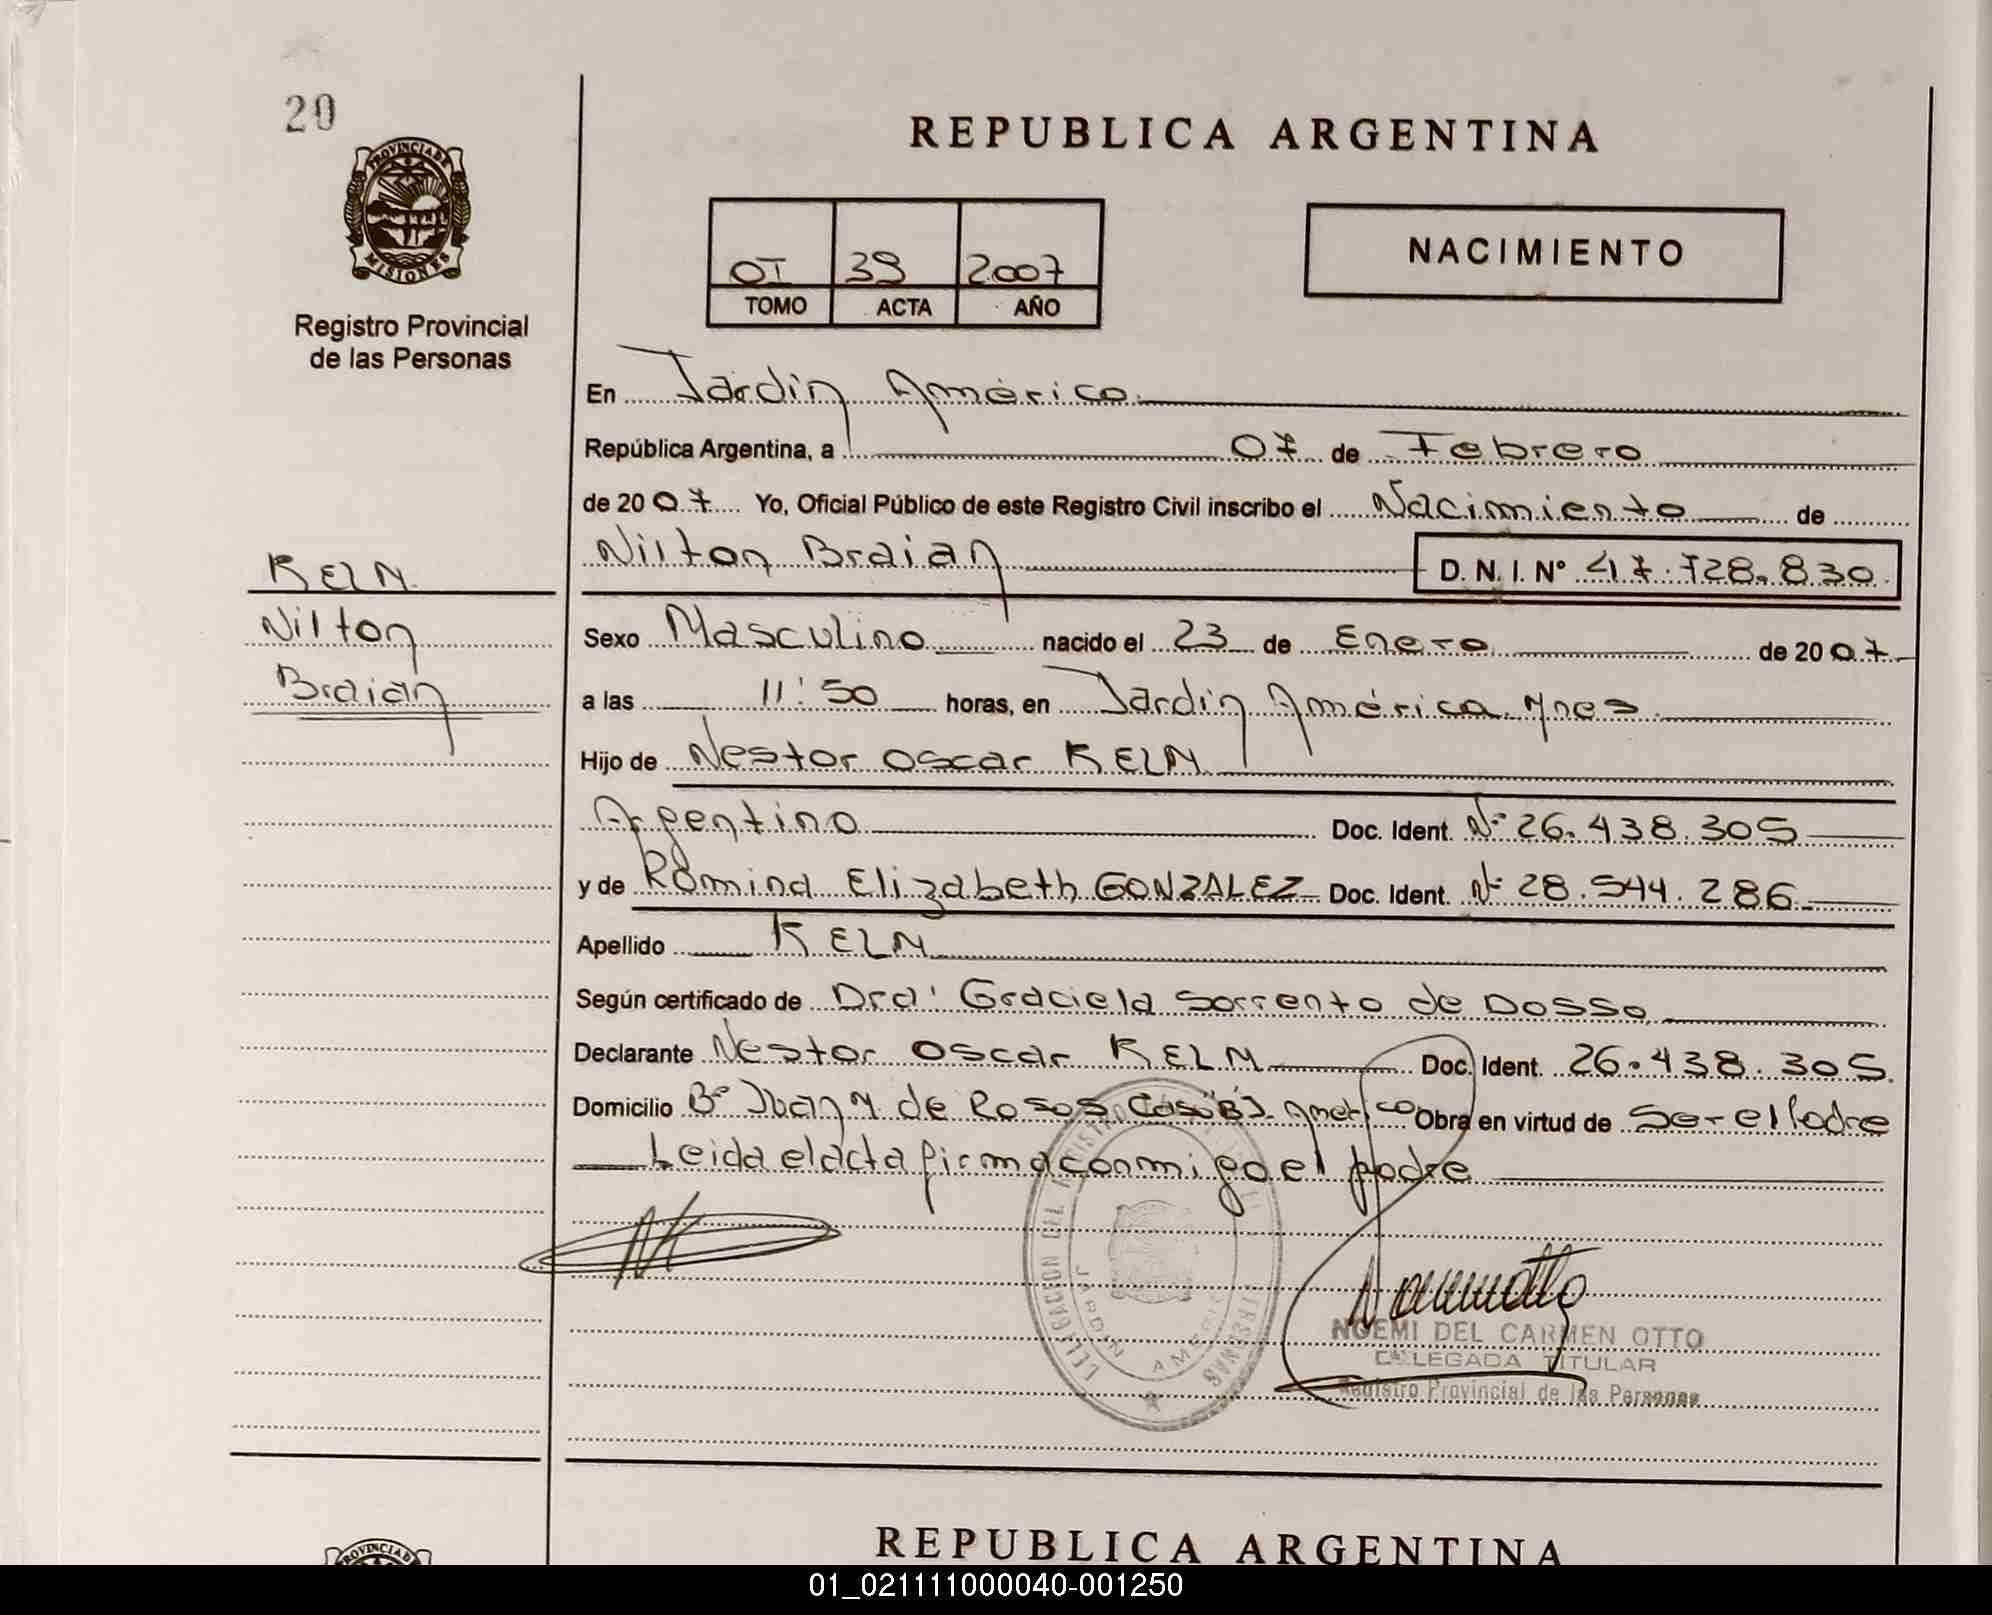 20
PROVINCIA DE
MISIONES
Registro Provincial
de las Personas
REPUBLICA ARGENTINA
OI 39 2007
TOMO ACTA AÑO
NACIMIENTO
En Jardin América
República Argentina, a 07 de Febrero
de 2007 Yo, Oficial Público de este Registro Civil inscribo el Nacimiento de
Nilton Braian D. N. I. Nº 47.728.830
KELM
Nilton
Braian
Sexo Masculino nacido el 23 de Enero de 2007
a las 11:50 horas, en Jardin América Mnes
Hijo de Nestor Oscar KELM
Argentino Doc. Ident. Nº 26.438.305
y de Romina Elizabeth GONZALEZ Doc. Ident. Nº 28.544.286
Apellido KELM
Según certificado de Dra: Graciela Sorrento de Dosso
Declarante Nestor Oscar KELM Doc. Ident. 26.438.305
Domicilio Bº Juan M de Rosas Casa "B" J. América Obra en virtud de Ser el Padre
Leida el acta firma conmigo el padre
JARDIN AMERICA
NOEMI DEL CARMEN OTTO
DELEGADA TITULAR
Registro Provincial de las Personas
REPUBLICA ARGENTINA
PROVINCIA DE
01_021111000040-001250